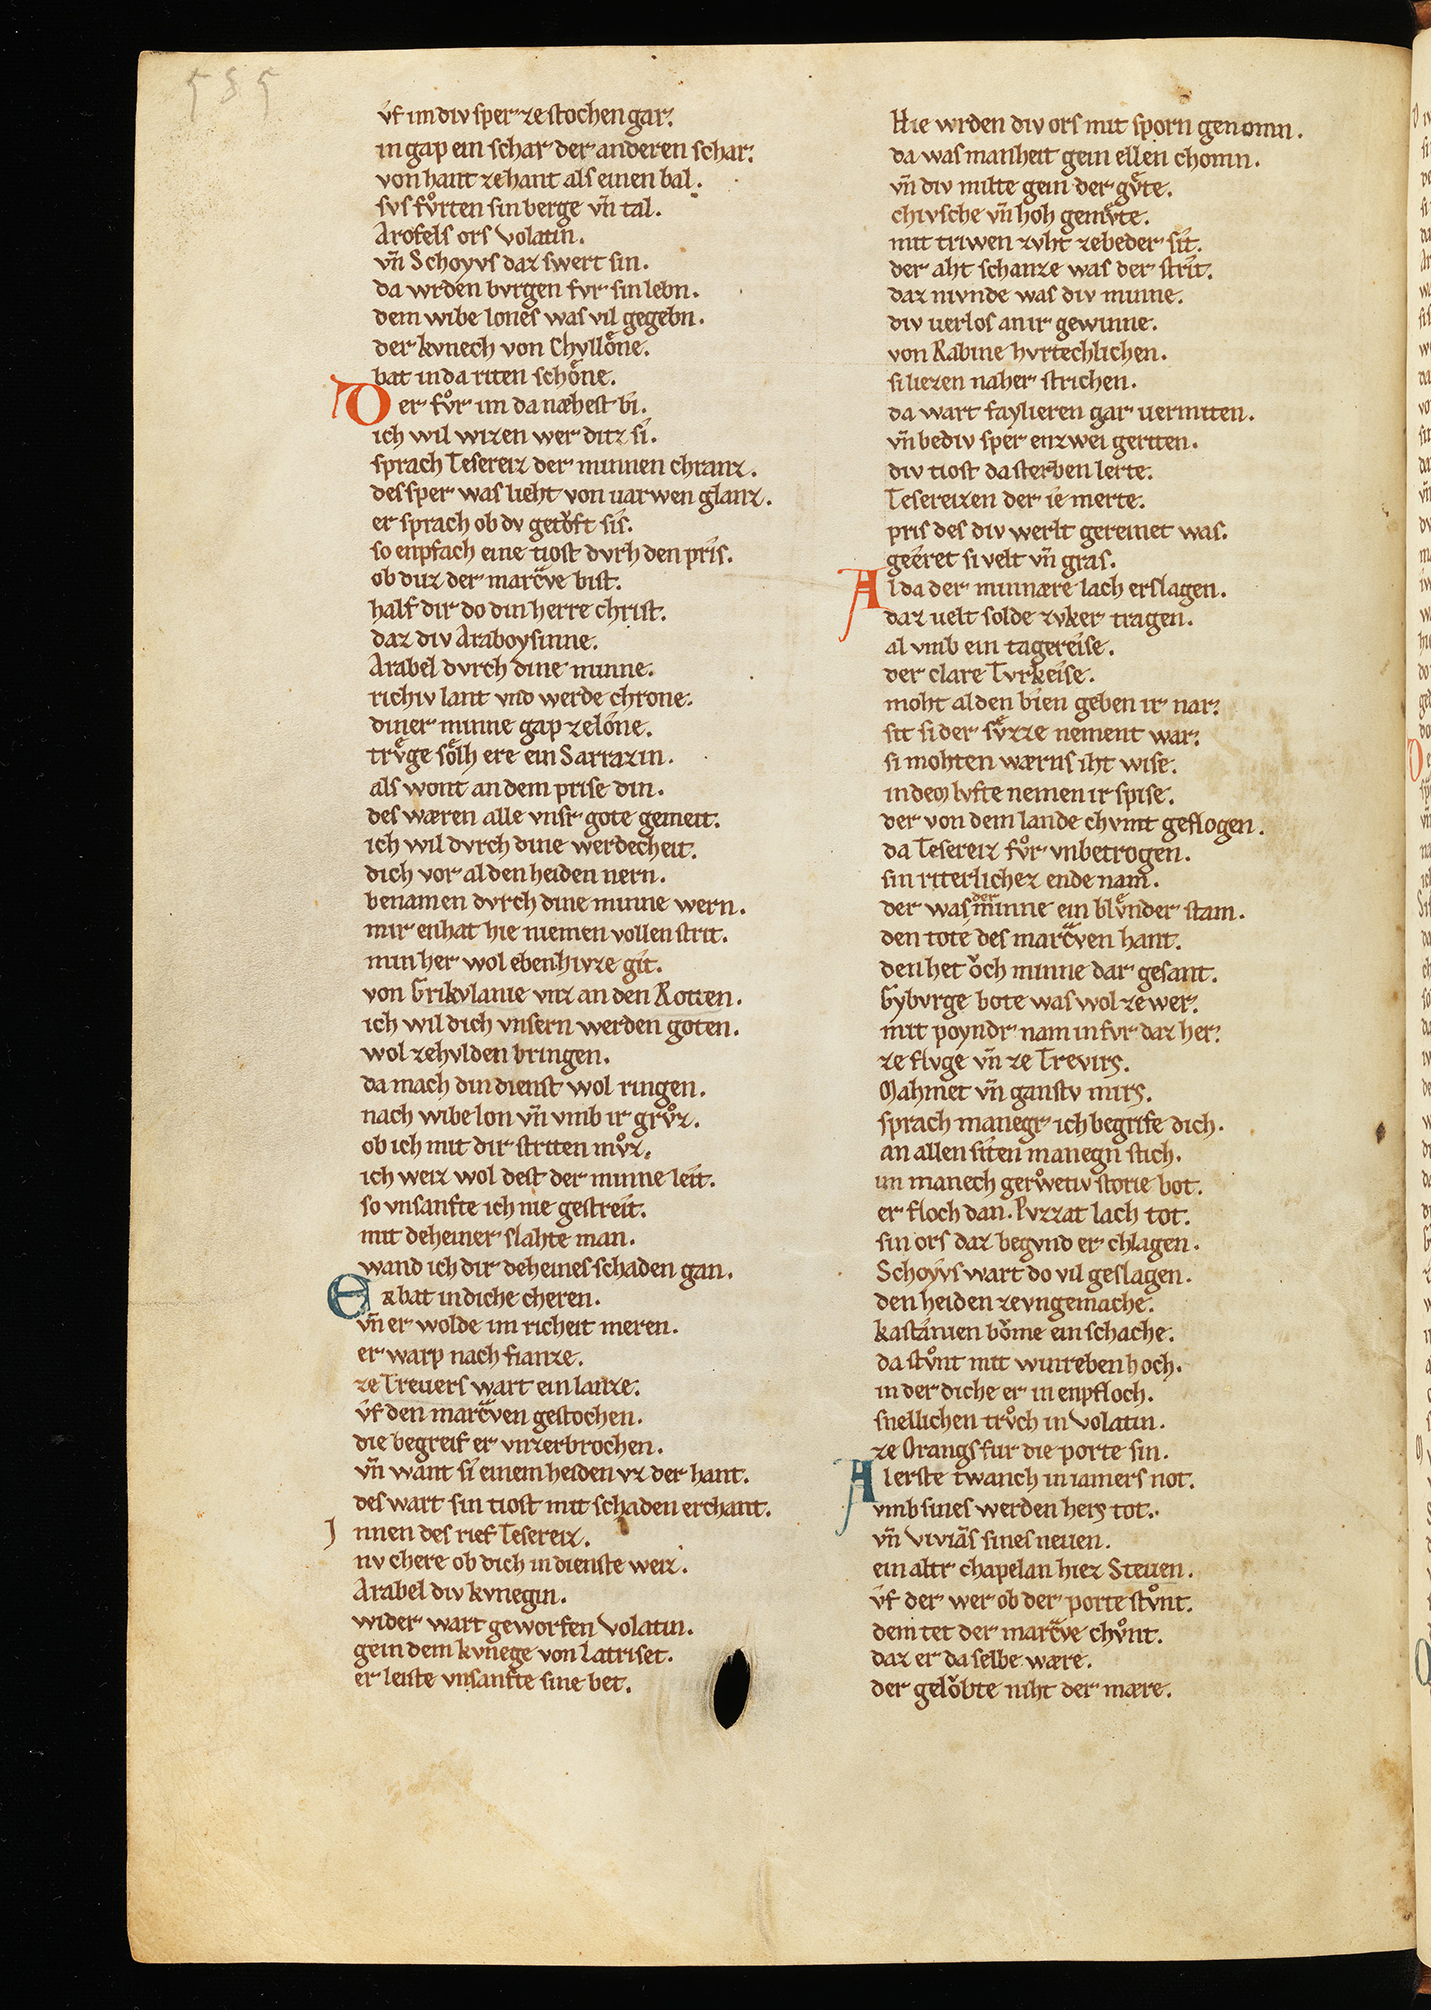 535
vf im div sper zestochen gar.
in gap ein schar der anderen schar.
von hant zehant als einen bal.
svs fůrten sin berge vñ tal.
Arofels ors Volatin.
vñ Schoyvs daz swert sin.
da wrden bvrgen fvr sin lebn.
dem wibe lones was vil gegebn.
der kvnech von Chyllône.
bat in da riten schône.
Der fůr im da næhest bi.
ich wil wizen wer ditz si.
sprach Tesereiz der minnen chranz.
des sper was lieht von uarwen glanz.
er sprach ob dv getôft sis.
so enpfach eine tiost dvrh den pris.
ob duz der marcͣve bist.
half dir do din herre christ.
daz div Araboysinne.
Arabel dvrch dine minne.
richiv lant vnd werde chrone.
diner minne gap zelône.
trv̂ge sôlh ere ein Sarrazin.
als wont an dem prise din.
des wæren alle vnsr gote gemeit.
ich wil dvrch dine werdecheit.
dich vor al den heiden nern.
benamen dvrch dine minne wern.
mir enhat hie niemen vollen strit.
min her wol eben hivze git.
von Grikvlanie vnz an den Rotten.
ich wil dich vnsern werden goten.
wol zehvlden bringen.
da mach din dienst wol ringen.
nach wibe lon vñ vmb ir grůz.
ob ich mit dir striten můz.
ich weiz wol dest der minne leit.
so vnsanfte ich nie gestreit.
mit deheiner slahte man.
wand ich dir deheines schaden gan.
Ez bat in diche cheren.
vñ er wolde im richeit meren.
er warp nach fianze.
ze Treuers wart ein lanze.
vf den marcͣven gestochen.
die begreif er vnzerbrochen.
vñ want si einem heiden vz der hant.
des wart sin tiost mit schaden erchant.
Innen des rief Tesereiz.
nv chere ob dich in dienste weiz.
Arabel div kvnegin.
wider wart geworfen Volatin.
gein dem kvnege von Latriset.
er leiste vnsanfte sine bet.
Hie wrden div ors mit sporn genomn.
da was manheit gein ellen chomn.
vñ div milte gein der gv̂te.
chivsche vñ hoh gemv̂te.
mit triwen zvht zebeder sit.
der aht schanze was der strit.
daz nivnde was div minne.
div uerlos an ir gewinne.
von Rabine hvrtechlichen.
si liezen naher strichen.
da wart faylieren gar uermiten.
vñ bediv sper enzwei geriten.
div tiost da sterben lerte.
Tesereizen der ie merte.
pris des div werlt gereinet was.
geêret si velt vñ gras.
Alda der minnære lach erslagen.
daz uelt solde zvker tragen.
al vmb ein tagereise.
der clare Tvrkeise.
moht al den bien geben ir nar.
sit si der sv̂zze nement war.
si mohten wærns iht wise.
in dem lvfte nemen ir spise.
der von dem lande chvmt geflogen.
da Tesereiz fůr vnbetrogen.
sin riterlichez ende nam.
der was der minne ein blv̂nder stam.
den tote des marcͣven hant.
den het ôch minne dar gesant.
Gybvrge bote was wol ze wer.
mit poyndr nam in fvr daz her.
ze flvge vñ ze Trevirs.
Mahmet vñ ganstv mirs.
sprach manegr ich begrife dich.
an allen siten manegn stich.
im manech gerůwetiv storie bot.
er floch dan. Puzzat lach tot.
sin ors daz begvnd er chlagen.
Schoyvs wart do vil geslagen.
den heiden zevngemache.
kastanien bôme ein schache.
da stůnt mit winreben hoch.
in der diche er in enpfloch.
snellichen trůch in Volatin.
ze Orangs fur die porte sin.
Alerste twanch in iamers not.
vmb sines werden hers tot.
vñ Viviãs sines neuen.
ein altr chapelan hiez Steuen.
vf der wer ob der porte stůnt.
dem tet der marcͣve chůnt.
daz er da selbe wære.
der gelôbte niht der mære.